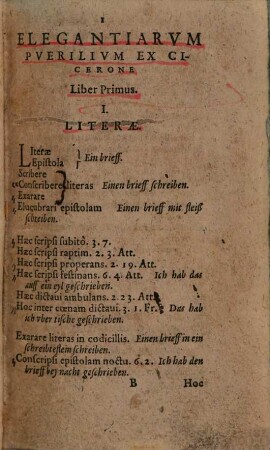 I
ELEGANTIARVM
PVERILIVM EX CI-
CERONE
Liber Primus.
I.
LITERÆ.
Literæ
Epistola } Ein brieff.
Scribere
Conscribere } literas Einen brieff schreiben.
Exarare
Elucubrari epistolam Einen brieff mit fleiß
schreiben.
Hæc scripsi subitò. 3. 7.
Hæc scripsi raptim. 2. 3. Att.
Hæc scripsi properans. 2. 19. Att.
Hæc scripsi festinans. 6. 4. Att. Ich hab das
auff ein eyl geschrieben.
Hæc dictaui ambulans. 2 23. Att.
Hoc inter cœnam dictaui. 3. 1. Fr. Das hab
ich vber tische geschrieben.
Exarare literas in codicillis. Einen brieff in ein
schreibteflein schreiben.
Conscripsi epistolam noctu. 6. 2. Ich hab den
brieff bey nacht geschrieben.
B Hoc